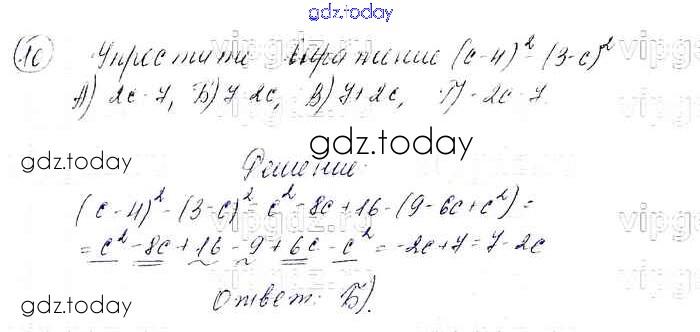 gdz.today
10 Упростите выражение (c-4)² - (3-c)²
А) 2c-7, Б) 7-2c, В) 7+2c, Г) -2c-7
gdz.today
gdz.today
Решение:
(c-4)² - (3-c)² = c² - 8c + 16 - (9 - 6c + c²) =
= c² - 8c + 16 - 9 + 6c - c² = -2c + 7 = 7 - 2c
gdz.today
gdz.today
Ответ: Б).